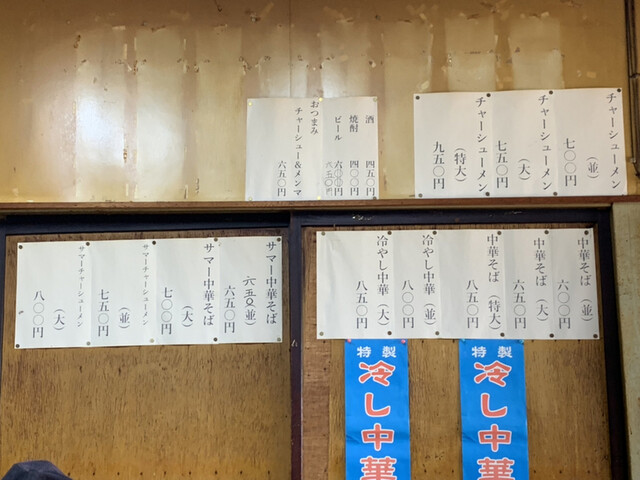 チャーシューメン
（並）
七〇〇円
チャーシューメン
（大）
七五〇円
チャーシューメン
（特大）
九五〇円
酒　四五〇円
焼酎　四〇〇円
ビール　六〇〇円
おつまみ
チャーシュー＆メンマ
六五〇円
中華そば（並）
六〇〇円
中華そば（大）
六五〇円
中華そば（特大）
八五〇円
冷やし中華（並）
八〇〇円
冷やし中華（大）
八五〇円
サマー中華そば
（並）
六五〇円
サマー中華そば
（大）
七〇〇円
サマーチャーシューメン
（並）
七五〇円
サマーチャーシューメン
（大）
八〇〇円
特製
冷し中華
特製
冷し中華